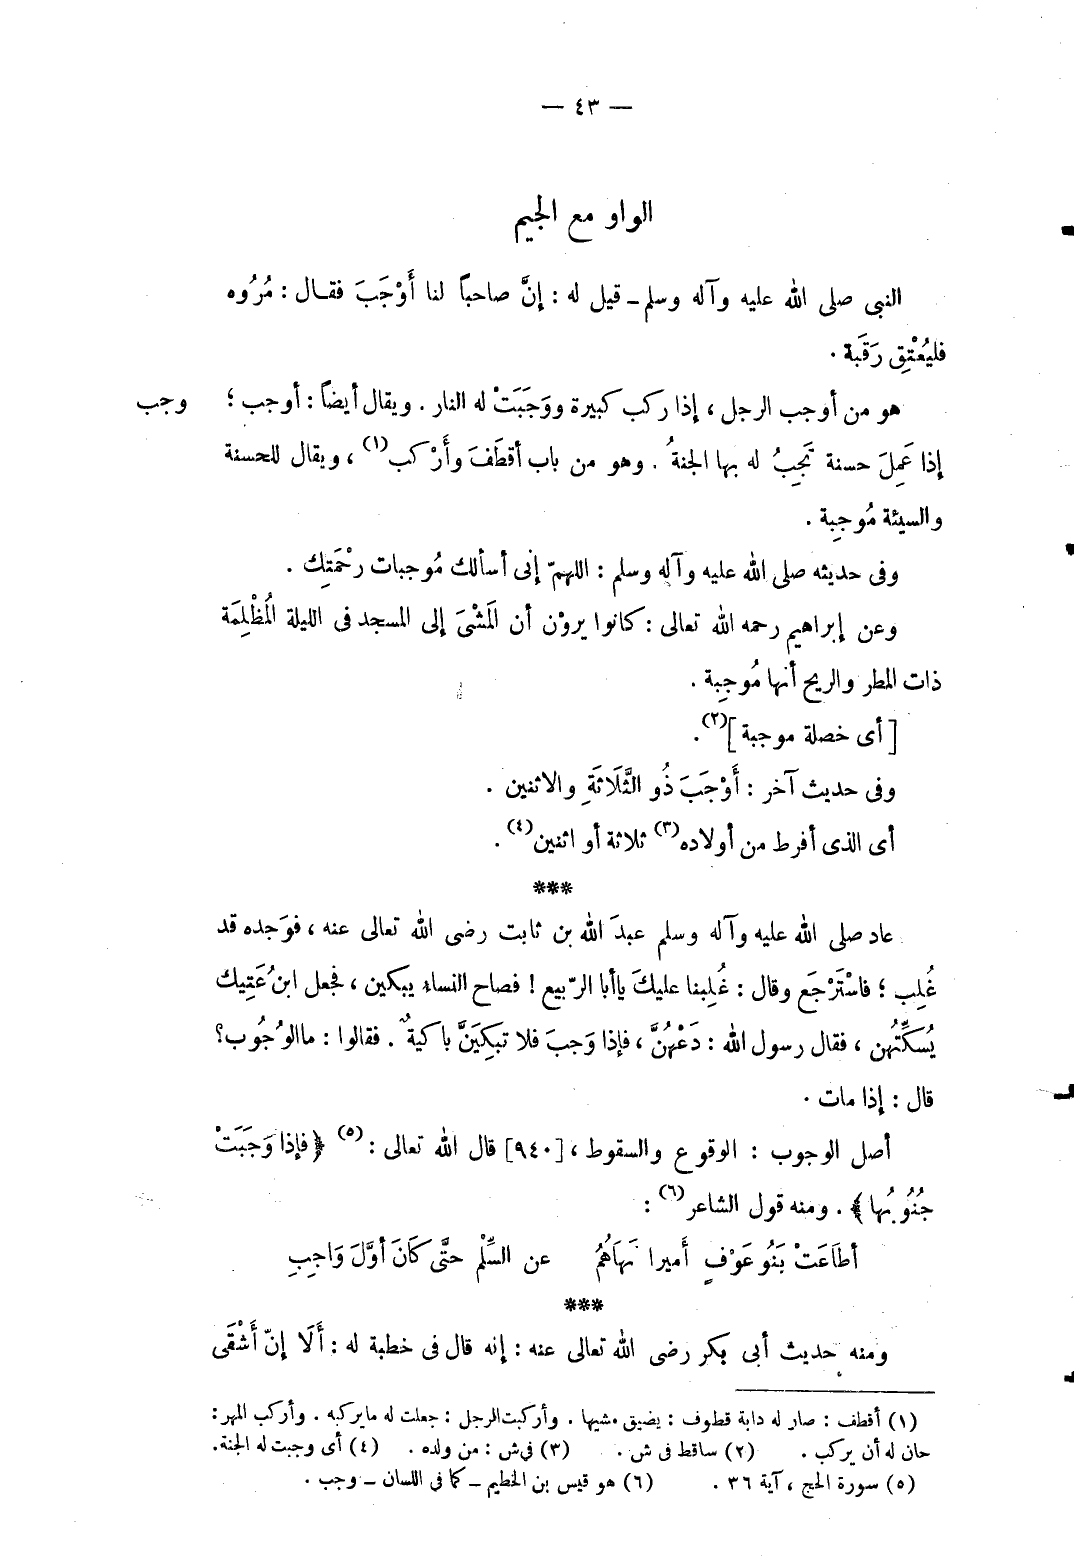 — ٤٣ —
الواو مع الجيم
النبى صلى الله عليه وآله وسلم ــ قيل له : إنَّ صاحباً لنا أَوْجَبَ فقـال : مُرُوه
فليُعْتِق رَقَبة .
هو من أوجب الرجل ، إذا ركب كبيرة ووَجَبَتْ له النار . ويقال أيضاً : أوجب ؛ وجب
إذا عَمِلَ حسنة تَجِبُ له بها الجنةُ . وهو من باب أقطَفَ وأَرْكب(١) ، ويقال للحسنة
والسيئة مُوجِبة .
وفى حديثه صلى الله عليه وآله وسلم : اللهمّ إنى أسألك مُوجبات رحْمَتِك .
وعن إبراهيم رحمه الله تعالى : كانوا يروْن أن المَشْىَ إلى المسجد فى الليلة المُظْلِمَة
ذات المطر والريح أنها مُوجِبة .
[ أى خصلة موجبة ](٢) .
وفى حديث آخر : أَوْجَبَ ذُو الثَّلَاثَةِ والاثنين .
أى الذى أفرط من أولاده(٣) ثلاثة أو اثنين(٤) .
***
عاد صلى الله عليه وآله وسلم عبدَ الله بن ثابت رضى الله تعالى عنه ، فوَجده قد
غُلِب ؛ فاسْتَرْجَع وقال : غُلِبنا عليكَ ياأبا الرّبيع ! فصاح النساء يبكين ، فجعل ابنُ عَتِيك
يُسَكِّتُهن ، فقال رسول الله : دَعْهُنَّ ، فإذا وَجبَ فلا تبكِيَنَّ باكيةٌ . فقالوا : ماالوُجُوب؟
قال : إذا مات .
أصل الوجوب : الوقوع والسقوط ، [٩٤٠] قال الله تعالى :(٥) ﴿ فإذا وَجَبَتْ
جُنُوبُها ﴾ . ومنه قول الشاعر(٦) :
أطَاعَتْ بَنُو عَوْفٍ أَميرا نَهَاهُمُ عن السِّلْم حتَّى كَانَ أوَّلَ وَاجِبِ
***
ومنه حديث أبى بكر رضى الله تعالى عنه : إنه قال فى خطبة له : أَلَا إنّ أَشْقَى
(١) أقطف : صار له دابة قطوف : يضيق مشيها . وأركبت الرجل : جعلت له مايركبه . وأركب المهر :
حان له أن يركب . (٢) ساقط فى ش . (٣) فى ش : من ولده . (٤) أى وجبت له الجنة.
(٥) سورة الحج ، آية ٣٦ . (٦) هو قيس بن الخطيم ــ كما فى اللسان ــ وجب .